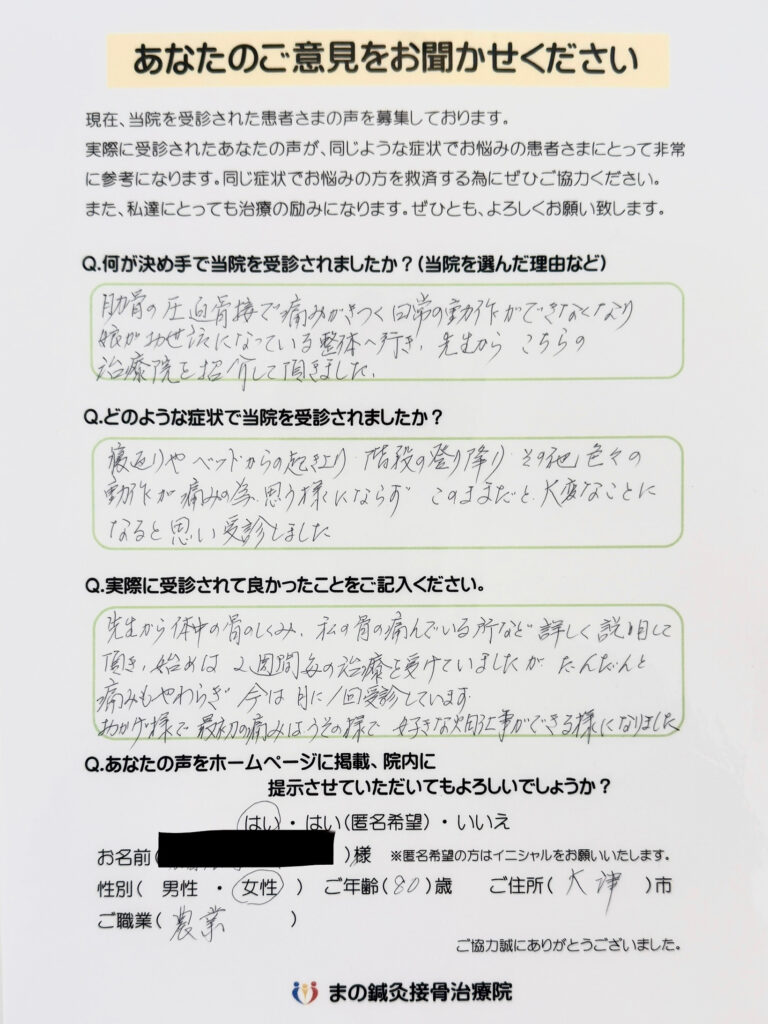 あなたのご意見をお聞かせください
現在、当院を受診された患者さまの声を募集しております。
実際に受診されたあなたの声が、同じような症状でお悩みの患者さまにとって非常
に参考になります。同じ症状でお悩みの方を救済する為にぜひご協力ください。
また、私達にとっても治療の励みになります。ぜひとも、よろしくお願い致します。
Q.何が決め手で当院を受診されましたか？(当院を選んだ理由など)
肋骨の圧迫骨接で痛みがきつく日常の動作ができなくなり
娘がお世話になっている整体へ行き、先生から こちらの
治療院を紹介して頂きました。
Q.どのような症状で当院を受診されましたか？
寝返りや ベッドからの起き上り 階段の登り降り その他 色々の
動作が痛みの為、思う様にならず このままだと、大変なことに
なると思い受診しました
Q.実際に受診されて良かったことをご記入ください。
先生から体中の骨のしくみ、私の骨の痛んでいる所など 詳しく説明して
頂き、始めは 2週間毎の治療を受けていましたが だんだんと
痛みもやわらぎ 今は 月に1回受診しています
おかげ様で 最初の痛みはうその様で 好きな畑仕事ができる様になりました
Q.あなたの声をホームページに掲載、院内に
提示させていただいてもよろしいでしょうか？
はい・はい(匿名希望)・いいえ
お名前( )様 ※匿名希望の方はイニシャルをお願いいたします。
性別( 男性 ・ 女性 ) ご年齢(80)歳 ご住所( 大津 )市
ご職業( 農業 )
ご協力誠にありがとうございました。
まの鍼灸接骨治療院